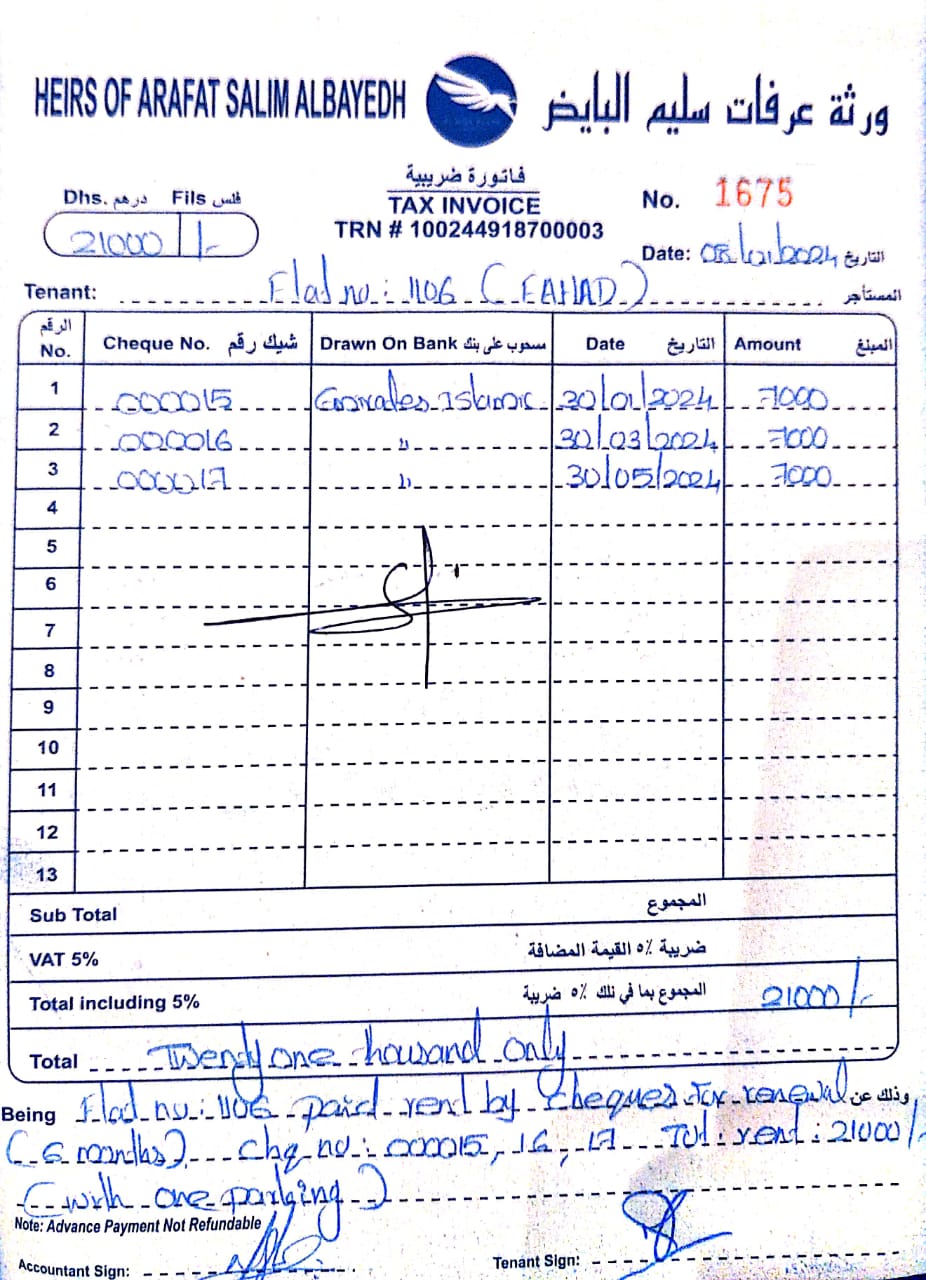 HEIRS OF ARAFAT SALIM ALBAYEDH ورثة عرفات سليم البايض
فاتورة ضريبية
TAX INVOICE
TRN # 100244918700003
Dhs. درهم Fils فلس
21000 /-
No. 1675
Date: 08/01/2024 التاريخ
Tenant: Flat no: 1106 (FAHAD) المستأجر
الرقم No. Cheque No. شيك رقم Drawn On Bank مسحوب على بنك Date التاريخ Amount المبلغ
1 000015 Emirates Islamic 30/01/2024 7000
2 000016 " 30/03/2024 7000
3 000017 " 30/05/2024 7000
4
5
6
7
8
9
10
11
12
13
Sub Total المجموع
VAT 5% ضريبة ٥% القيمة المضافة
Total including 5% المجموع بما في ذلك ٥% ضريبة 21000/-
Total Twenty one thousand only
Being Flat no: 1106 paid rent by cheques for renewal وذلك عن
(6 months) chq no: 000015, 16, 17 Tot: rent: 21000/-
(with one parking)
Note: Advance Payment Not Refundable
Accountant Sign: Tenant Sign: